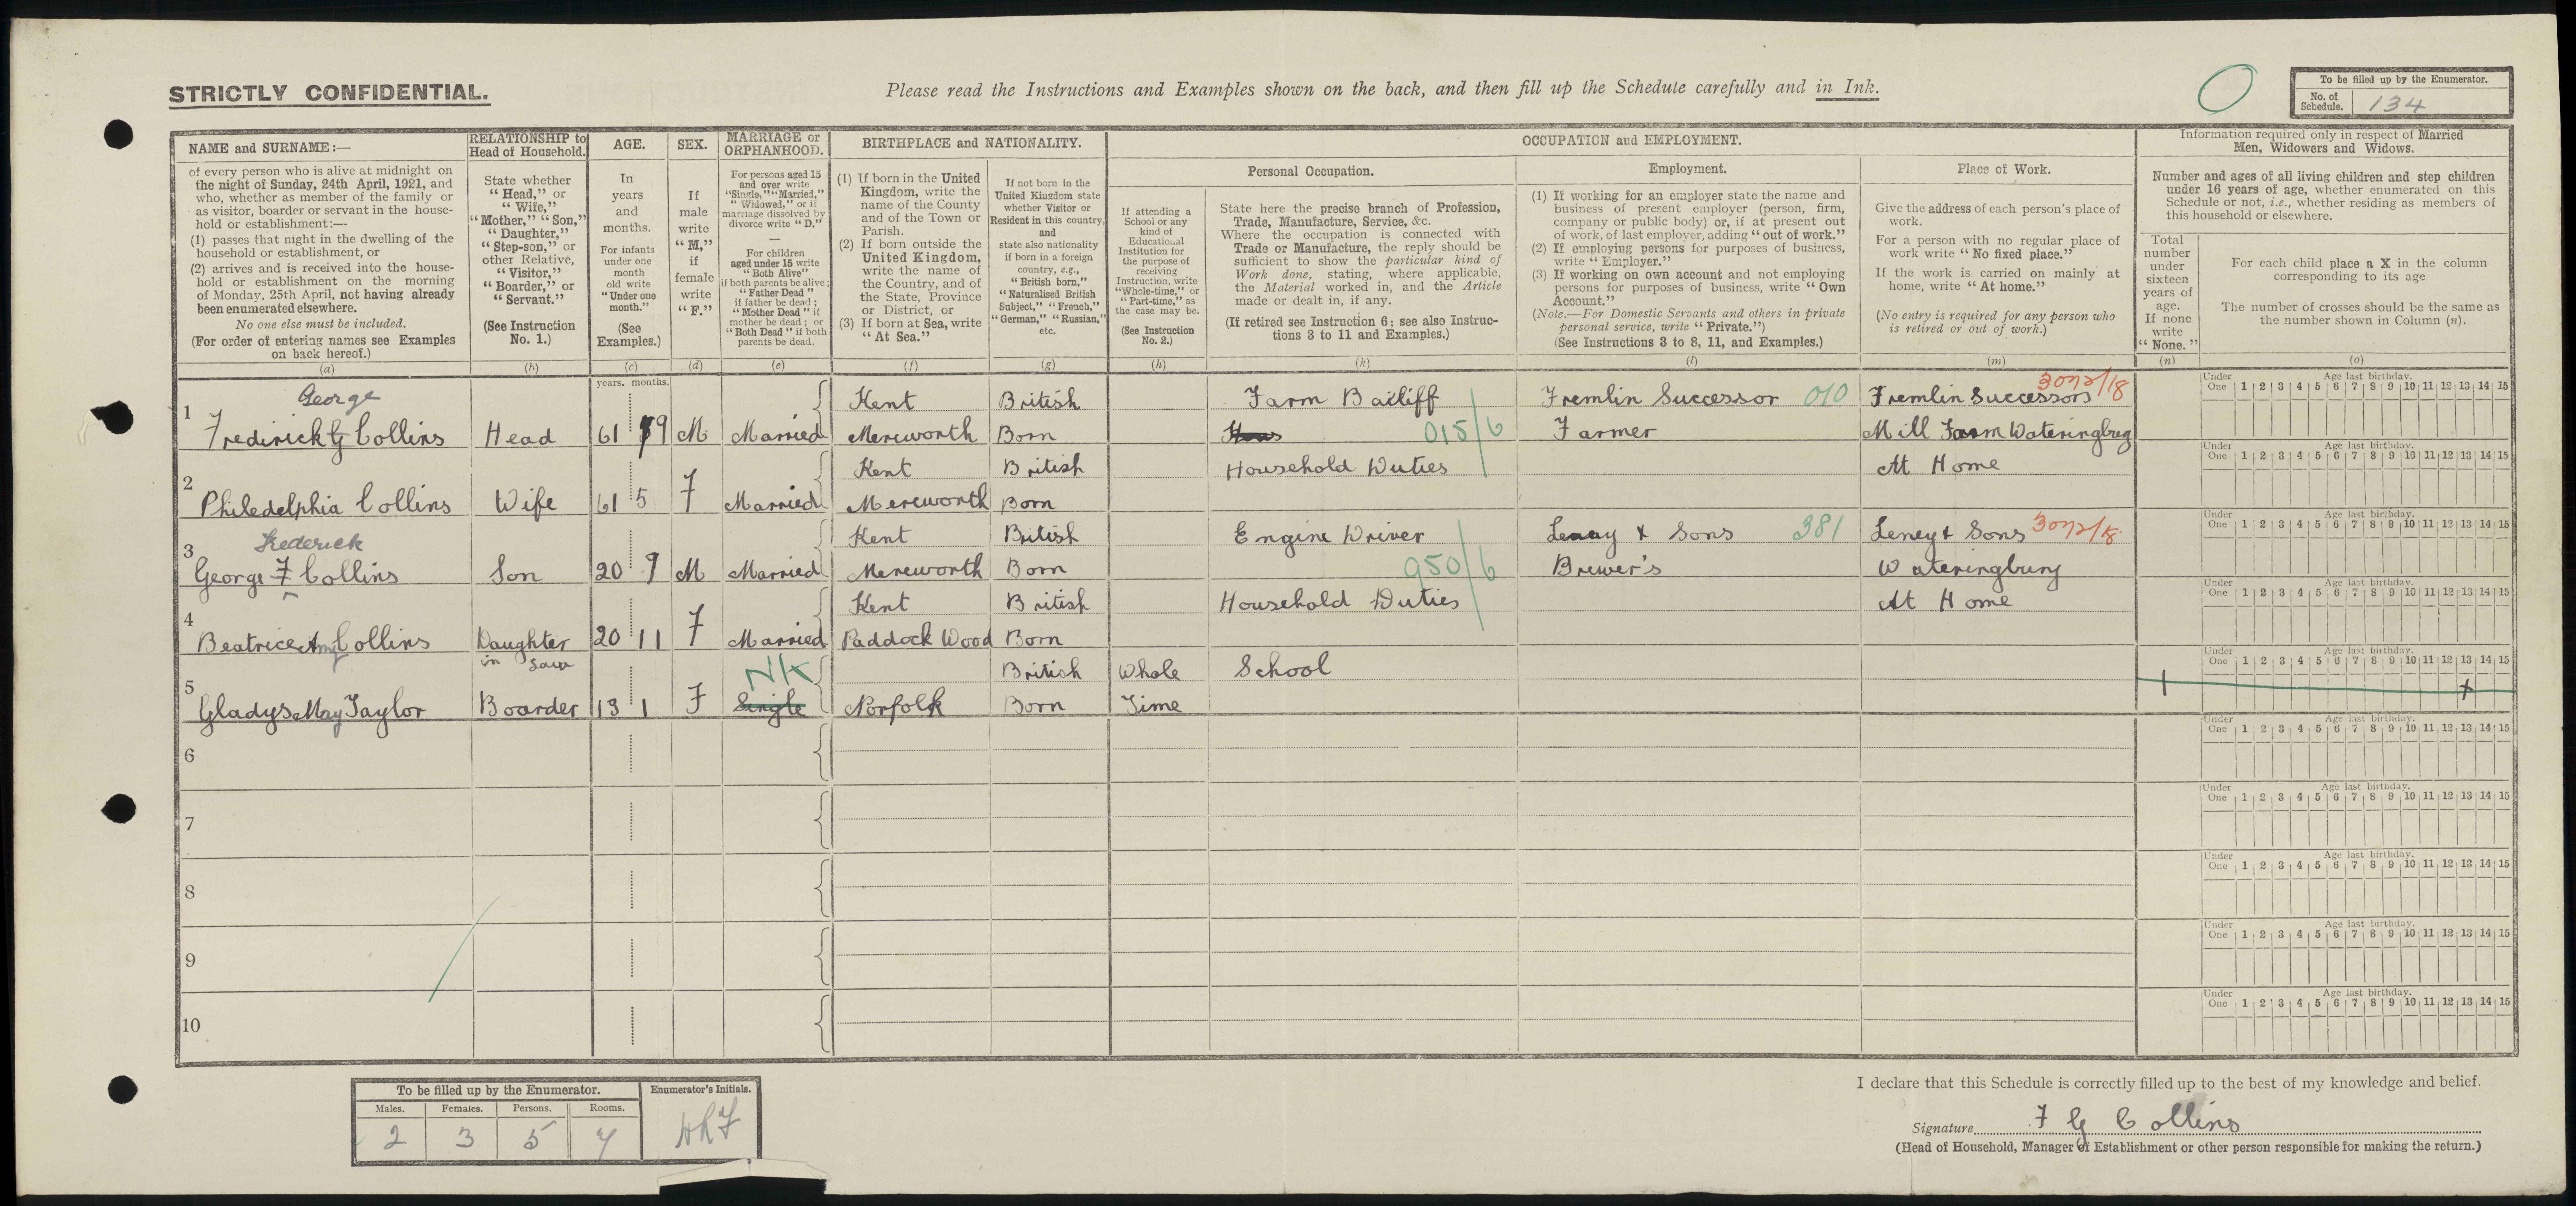 STRICTLY CONFIDENTIAL.
Please read the Instructions and Examples shown on the back, and then fill up the Schedule carefully and in Ink.
To be filled up by the Enumerator.
No. of Schedule. 134
NAME and SURNAME:—
of every person who is alive at midnight on
the night of Sunday, 24th April, 1921, and
who, whether as member of the family or
as visitor, boarder or servant in the house-
hold or establishment:—
(1) passes that night in the dwelling of the
household or establishment, or
(2) arrives and is received into the house-
hold or establishment on the morning
of Monday, 25th April, not having already
been enumerated elsewhere.
No one else must be included.
(For order of entering names see Examples
on back hereof.)
(a)
RELATIONSHIP to
Head of Household.
State whether
"Head," or
"Wife,"
"Mother," "Son,"
"Daughter,"
"Step-son," or
other Relative,
"Visitor,"
"Boarder," or
"Servant."
(See Instruction
No. 1.)
(b)
AGE.
In
years
and
months.
For infants
under one
month
old write
"Under one
month."
(See
Examples.)
(c)
SEX.
If
male
write
"M,"
if
female
write
"F."
(d)
MARRIAGE or
ORPHANHOOD.
For persons aged 15
and over write
"Single," "Married,"
"Widowed," or if
marriage dissolved by
divorce write "D."
—
For children
aged under 15 write
"Both Alive"
if both parents be alive;
"Father Dead"
if father be dead;
"Mother Dead" if
mother be dead; or
"Both Dead" if both
parents be dead.
(e)
BIRTHPLACE and NATIONALITY.
(1) If born in the United
Kingdom, write the
name of the County
and of the Town or
Parish.
(2) If born outside the
United Kingdom,
write the name of
the Country, and of
the State, Province
or District, or
(3) If born at Sea, write
"At Sea."
(f)
If not born in the
United Kingdom state
whether Visitor or
Resident in this country,
and
state also nationality
if born in a foreign
country, e.g.,
"British born,"
"Naturalised British
Subject," "French,"
"German," "Russian,"
etc.
(g)
OCCUPATION and EMPLOYMENT.
Personal Occupation.
If attending a
School or any
kind of
Educational
Institution for
the purpose of
receiving
Instruction, write
"Whole-time," or
"Part-time," as
the case may be.
(See Instruction
No. 2.)
(h)
State here the precise branch of Profession,
Trade, Manufacture, Service, &c.
Where the occupation is connected with
Trade or Manufacture, the reply should be
sufficient to show the particular kind of
Work done, stating, where applicable,
the Material worked in, and the Article
made or dealt in, if any.
(If retired see Instruction 6; see also Instruc-
tions 3 to 11 and Examples.)
(k)
Employment.
(1) If working for an employer state the name and
business of present employer (person, firm,
company or public body) or, if at present out
of work, of last employer, adding "out of work."
(2) If employing persons for purposes of business,
write "Employer."
(3) If working on own account and not employing
persons for purposes of business, write "Own
Account."
(Note.—For Domestic Servants and others in private
personal service, write "Private.")
(See Instructions 3 to 8, 11, and Examples.)
(l)
Place of Work.
Give the address of each person's place of
work.
For a person with no regular place of
work write "No fixed place."
If the work is carried on mainly at
home, write "At home."
(No entry is required for any person who
is retired or out of work.)
(m)
Information required only in respect of Married
Men, Widowers and Widows.
Number and ages of all living children and step children
under 16 years of age, whether enumerated on this
Schedule or not, i.e., whether residing as members of
this household or elsewhere.
Total
number
under
sixteen
years of
age.
If none
write
"None."
(n)
For each child place a X in the column
corresponding to its age.
The number of crosses should be the same as
the number shown in Column (n).
(o)
years. months.
George Kent British Farm Bailiff Fremlin Successor 010 Fremlin Successors 3072/18
1 Fredirick G Collins Head 61 9 M Married Mereworth Born 015/6 Farmer Mill Farm Wateringbury
Under One 1 2 3 4 5 6 7 8 9 10 11 12 13 14 15 Age last birthday.
Kent British Household Duties At Home
2 Philedelphia Collins Wife 61 5 F Married Mereworth Born
Under One 1 2 3 4 5 6 7 8 9 10 11 12 13 14 15 Age last birthday.
Frederick Kent British Engine Driver & Sons 381 Leney & Sons 3072/18
3 George F Collins Son 20 9 M Married Mereworth Born 950/6 Brewer's Wateringbury
Under One 1 2 3 4 5 6 7 8 9 10 11 12 13 14 15 Age last birthday.
Kent British Household Duties At Home
4 Beatrice Amy Collins Daughter 20 11 F Married Paddock Wood Born
in Law
Under One 1 2 3 4 5 6 7 8 9 10 11 12 13 14 15 Age last birthday.
N/K British Whole School 1 x
5 Gladys May Taylor Boarder 13 1 F Single Norfolk Born Time
Under One 1 2 3 4 5 6 7 8 9 10 11 12 13 14 15 Age last birthday.
6
Under One 1 2 3 4 5 6 7 8 9 10 11 12 13 14 15 Age last birthday.
7
Under One 1 2 3 4 5 6 7 8 9 10 11 12 13 14 15 Age last birthday.
8
Under One 1 2 3 4 5 6 7 8 9 10 11 12 13 14 15 Age last birthday.
9
Under One 1 2 3 4 5 6 7 8 9 10 11 12 13 14 15 Age last birthday.
10
Under One 1 2 3 4 5 6 7 8 9 10 11 12 13 14 15 Age last birthday.
To be filled up by the Enumerator.
Males. Females. Persons. Rooms.
2 3 5 7
Enumerator's Initials.
I declare that this Schedule is correctly filled up to the best of my knowledge and belief.
Signature F G Collins
(Head of Household, Manager of Establishment or other person responsible for making the return.)